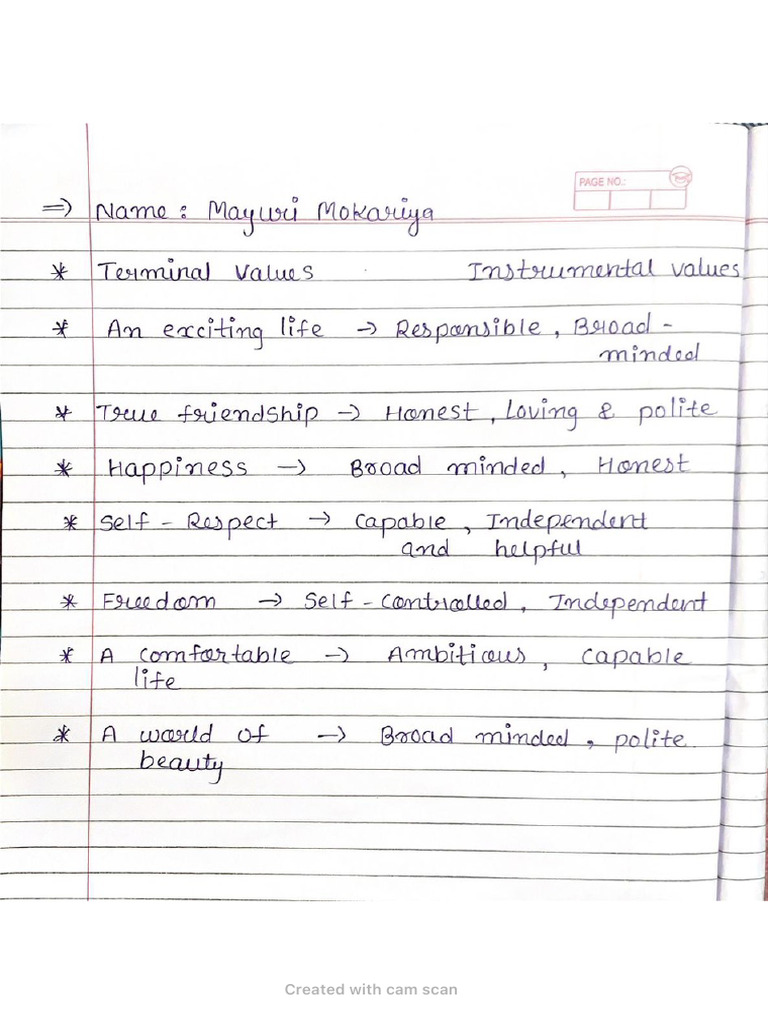 PAGE NO.:
=> Name : Mayuri Mokariya
* Terminal Values Instrumental values
* An exciting life → Responsible, Broad-
minded
* True friendship → Honest, Loving & polite
* Happiness → Broad minded, Honest
* Self - Respect → Capable, Independent
and helpful
* Freedom → Self - Controlled, Independent
* A comfortable → Ambitious, Capable
life
* A world of → Broad minded, polite.
beauty
Created with cam scan